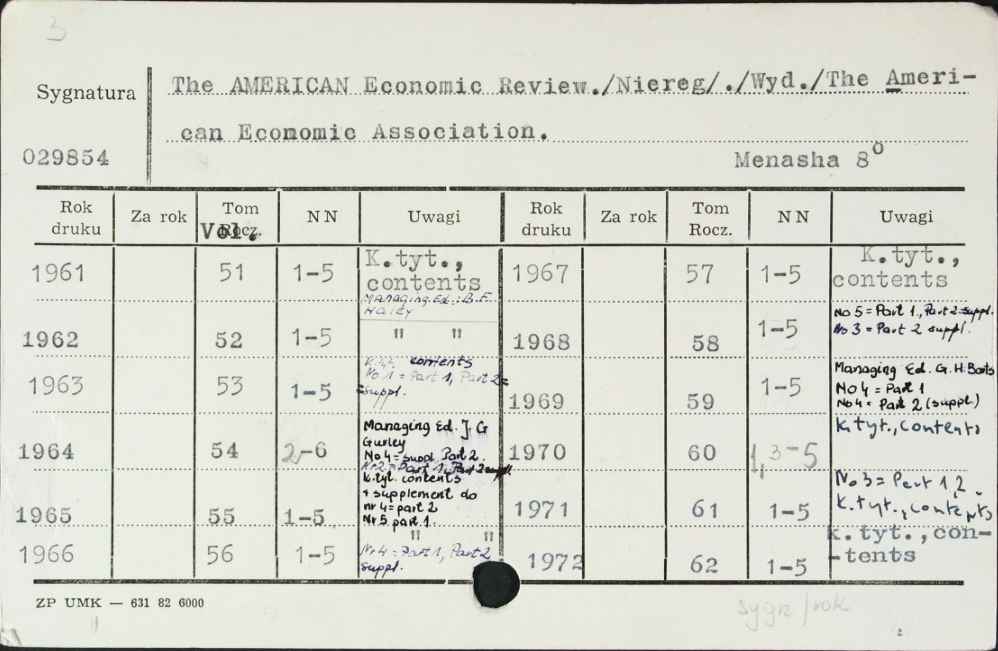 3
Sygnatura
The AMERICAN Economic Review./Niereg/./Wyd./The Ameri-
can Economic Association.
029854
Menasha 8°
Rok druku Za rok Tom Rocz. Vol. NN Uwagi Rok druku Za rok Tom Rocz. NN Uwagi
1961 51 1-5 K.tyt., contents
Managing Ed.: B.F. Haley
1962 52 1-5 " "
1963 53 1-5 K.tyt. contents
No 1 = Part 1, Part 2 = suppl.
1964 54 2,-6 Managing Ed. J. G Gurley
No 4 = suppl. Part 2.
Nr 2 = Part 1, Part 2 suppl.
1965 55 1-5 k.tyt. contents
+ supplement do
nr 4 = part 2
Nr 5 part 1.
1966 56 1-5 " "
Nr 4 = Part 1, Part 2
suppl.
1967 57 1-5 K.tyt.,
contents
1968 58 1-5 No 5 = Part 1., Part 2 = suppl.
No 3 = Part 2 suppl.
1969 59 1-5 Managing Ed. G. H. Borts
No 4 = Part 1
No 4 = Part 2 (suppl.)
1970 60 1,3-5 k.tyt., contents
1971 61 1-5 No 3 = Part 1,2.
k.tyt., contents
1972 62 1-5 k.tyt.,con-
-tents
ZP UMK — 631 82 6000
sygn/rok